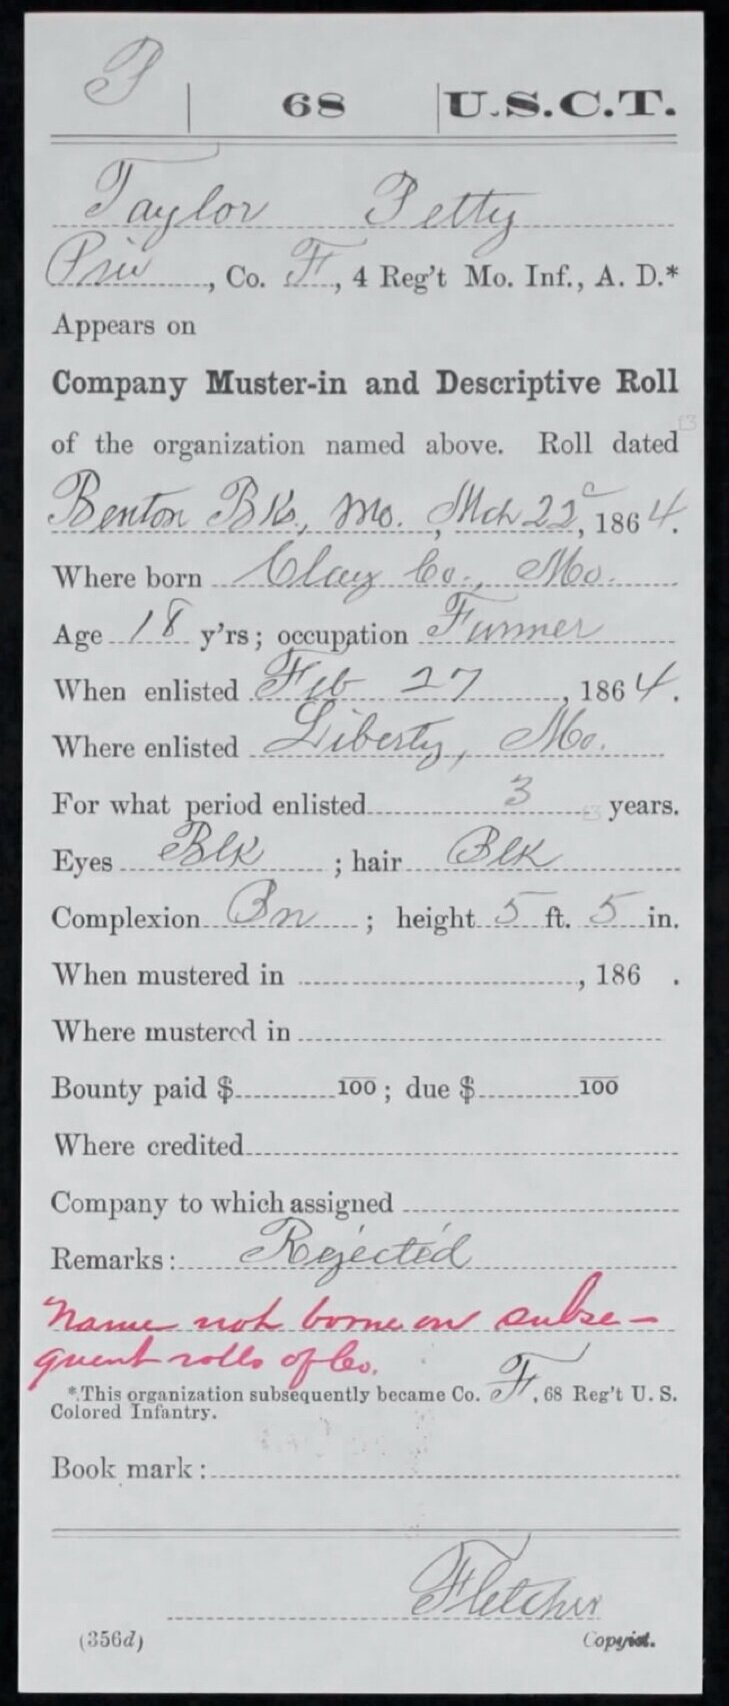 P | 68 | U.S.C.T.
Taylor Petty
Priv, Co. F, 4 Reg't Mo. Inf., A. D.*
Appears on
Company Muster-in and Descriptive Roll
of the organization named above. Roll dated
Benton Bks, Mo., Mch 22, 1864.
Where born Clay Co., Mo.
Age 18 y'rs; occupation Farmer
When enlisted Feb 27, 1864.
Where enlisted Liberty, Mo.
For what period enlisted 3 years.
Eyes Blk ; hair Blk
Complexion Bn ; height 5 ft. 5 in.
When mustered in , 186 .
Where mustered in
Bounty paid $ 100 ; due $ 100
Where credited
Company to which assigned
Remarks: Rejected
Name not borne on subse-
quent rolls of Co.
*This organization subsequently became Co. F, 68 Reg't U. S.
Colored Infantry.
Book mark:
Fletcher
(356d) Copyist.